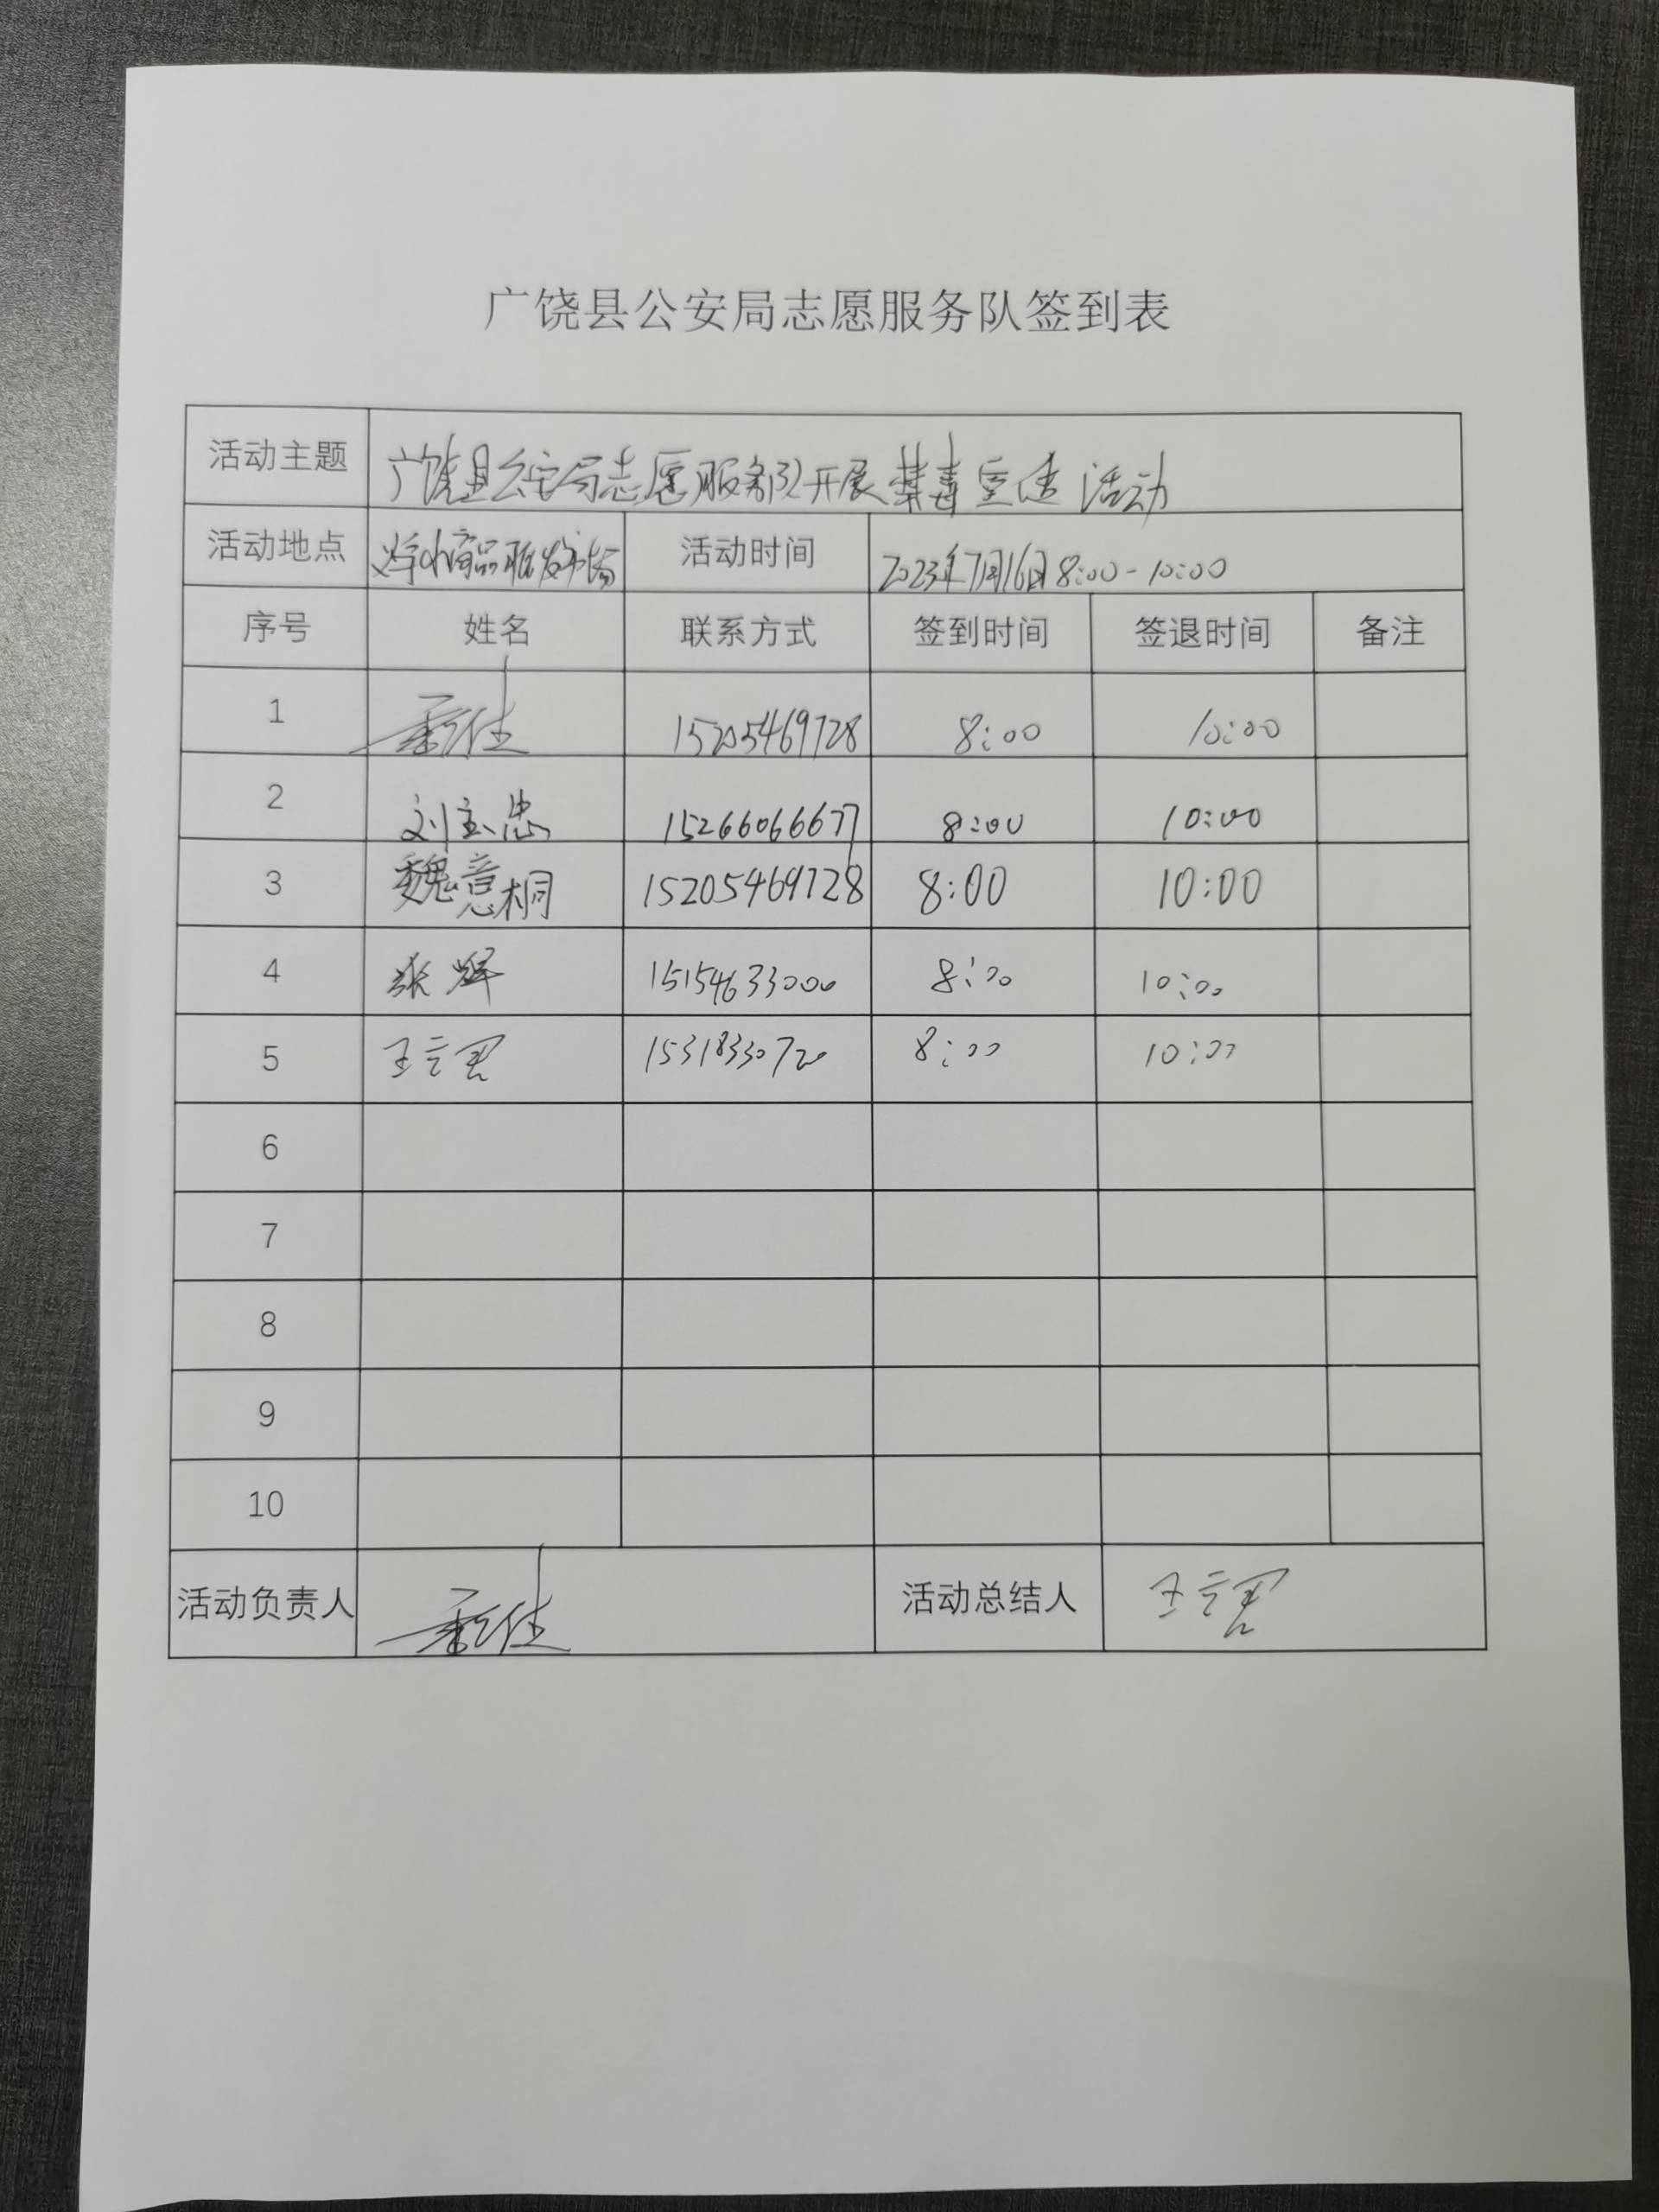 广饶县公安局志愿服务队签到表
活动主题 广饶县公安局志愿服务队开展禁毒宣传活动
活动地点 小商品批发市场 活动时间 2023年7月16日8:00-10:00
序号 姓名 联系方式 签到时间 签退时间 备注
1 15205469728 8:00 10:00
2 刘宝忠 15266066677 8:00 10:00
3 魏意桐 15205469728 8:00 10:00
4 张辉 15154633000 8:00 10:00
5 王立君 15318330720 8:00 10:00
6
7
8
9
10
活动负责人 活动总结人 王立君